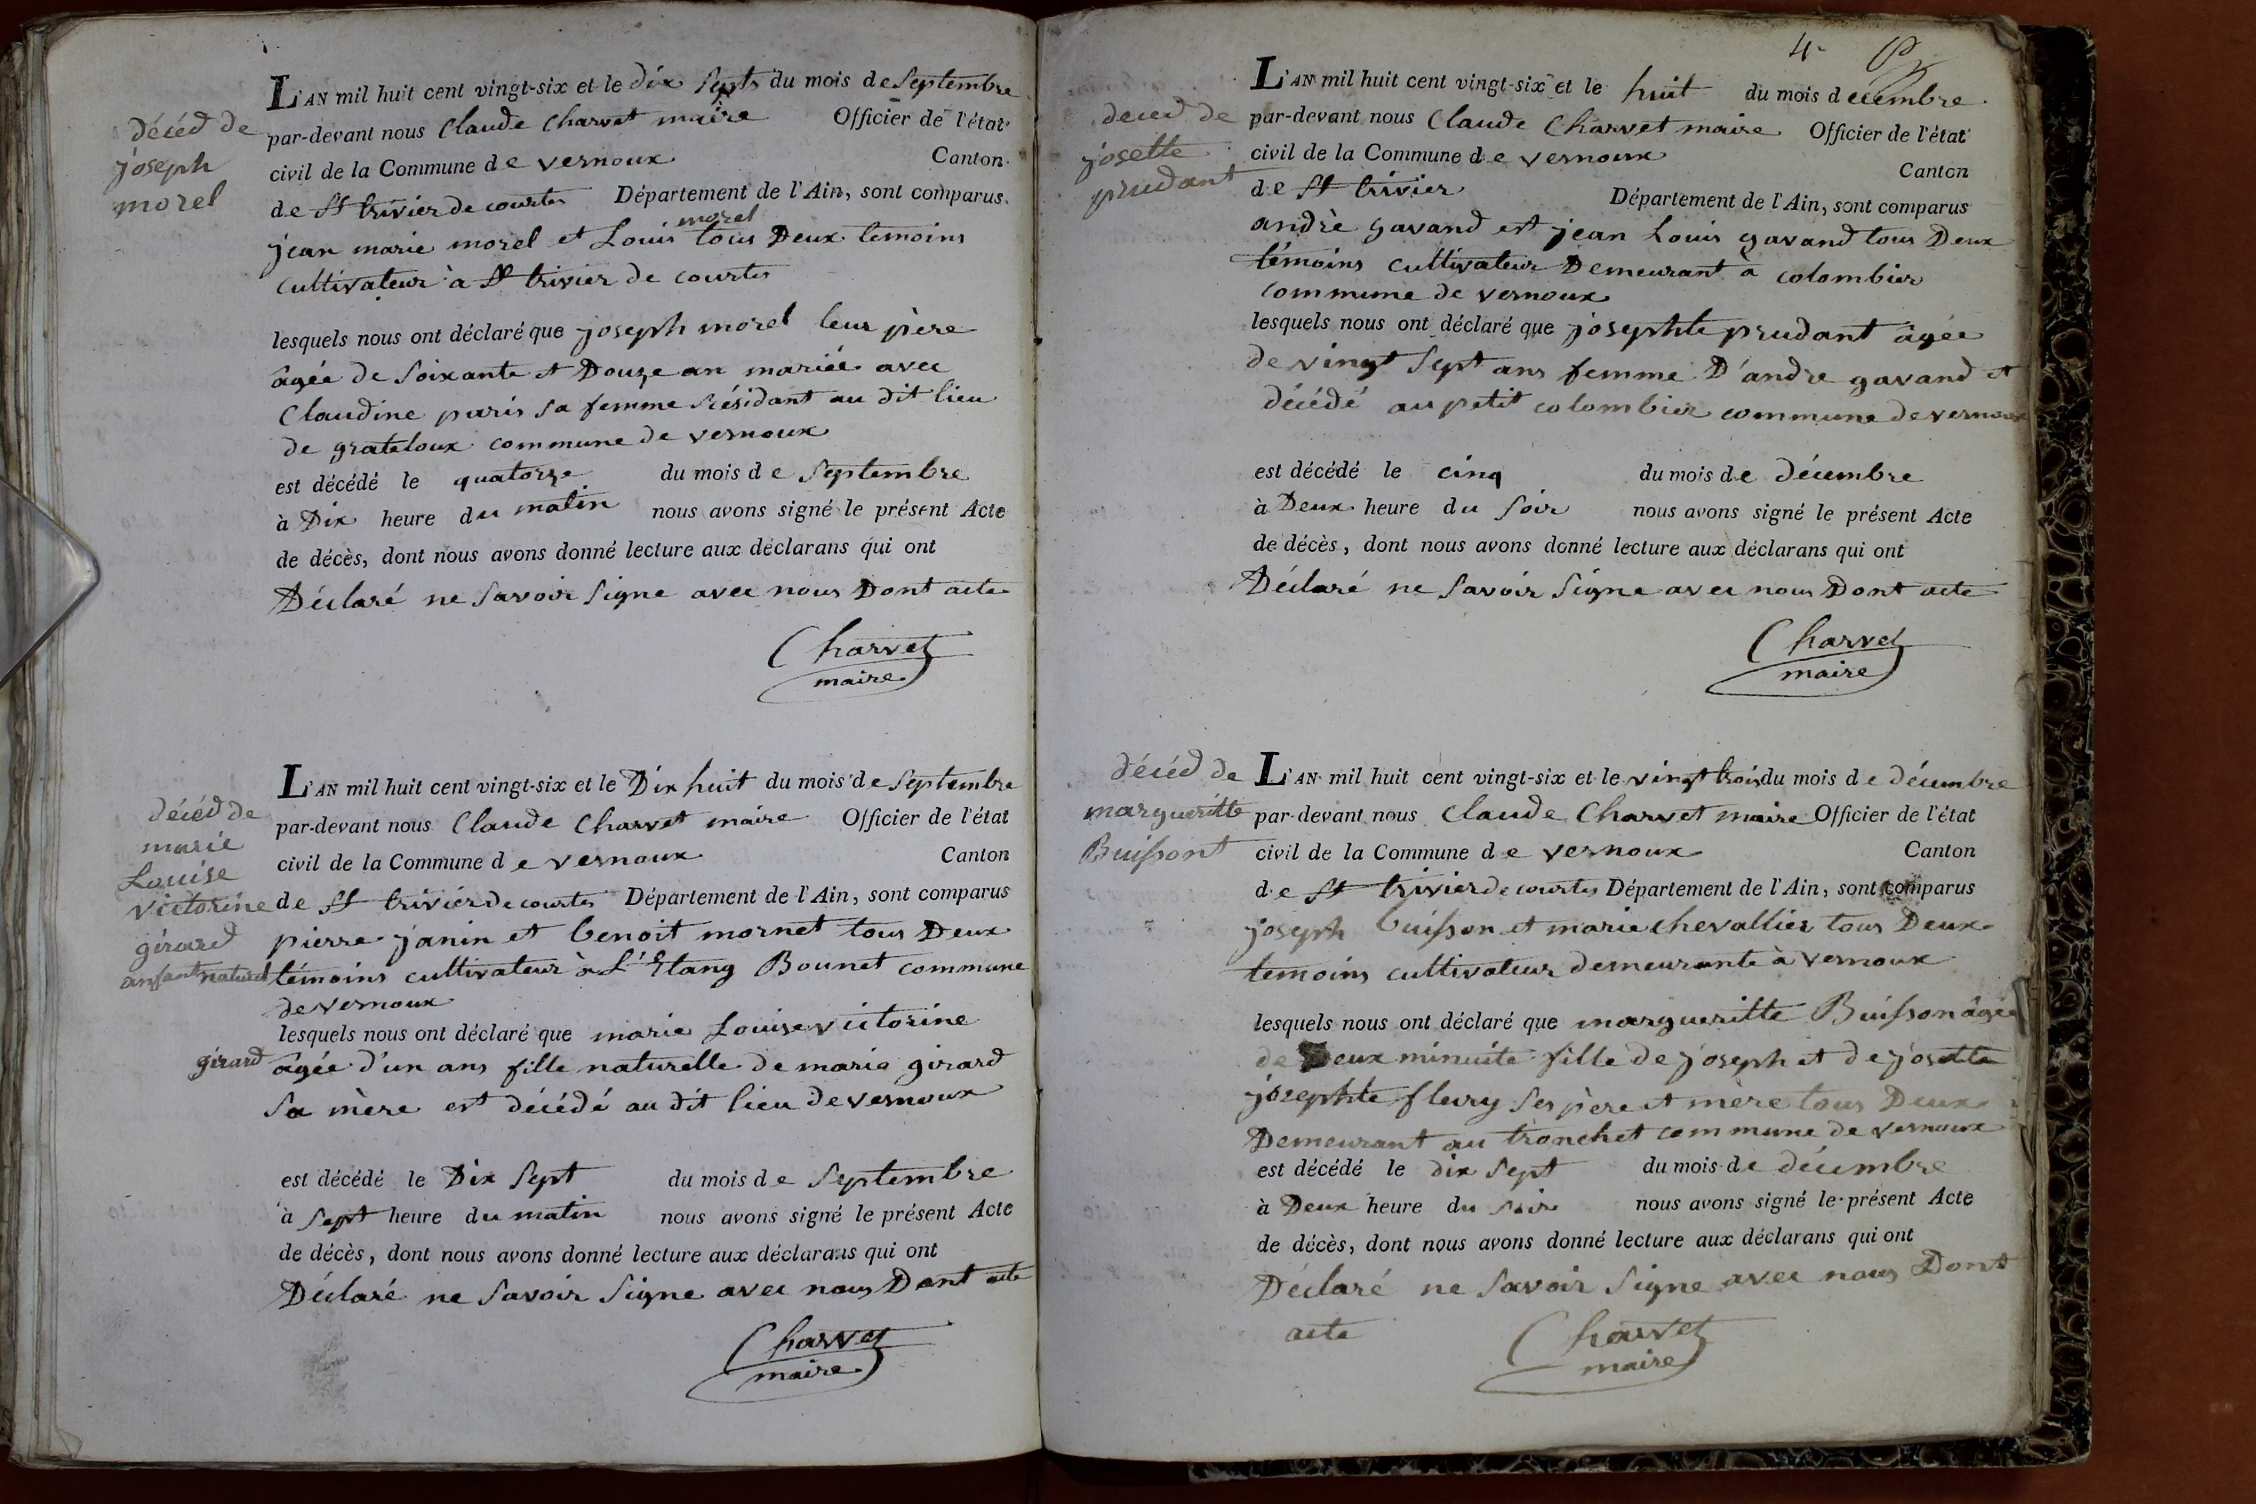 décéd de
joseph
morel
L'AN mil huit cent vingt-six et le dix Septs du mois de Septembre
par-devant nous Claude Charvet maire Officier de l'état
civil de la Commune de vernoux Canton
de St trivier de courtes Département de l'Ain, sont comparus
morel
jean marie morel et Louis tous Deux temoins
cultivateur à St trivier de courtes
lesquels nous ont déclaré que joseph morel leur père
âgée de Soixante et Douze an mariée avec
Claudine paris sa femme Résidant au dit lieu
de grateloux commune de vernoux
est décédé le quatorze du mois de Septembre
à Dix heure du matin nous avons signé le présent Acte
de décès, dont nous avons donné lecture aux déclarans qui ont
Déclaré ne Savoir Signe avec nous Dont acte
Charvet
maire
décéd de
marie
Louise
victorine
girard
anfant naturel
L'AN mil huit cent vingt-six et le Dix huit du mois de Septembre
par-devant nous Claude Charvet maire Officier de l'état
civil de la Commune de vernoux Canton
de St trivier de courtes Département de l'Ain, sont comparus
pierre janin et benoit mornet tous Deux
témoins cultivateur à L'Etang Bounet commune
de vernoux
lesquels nous ont déclaré que marie Louise victorine
girard âgée d'un ans fille naturelle de marie girard
Sa mère est décédé au dit lieu de vernoux
est décédé le Dix Sept du mois de Septembre
à Sept heure du matin nous avons signé le présent Acte
de décès, dont nous avons donné lecture aux déclarans qui ont
Déclaré ne Savoir Signe avec nous Dont acte
Charvet
maire
4
deced de
josette
prudant
L'AN mil huit cent vingt-six et le huit du mois decembre
par-devant nous Claude Charvet maire Officier de l'état
civil de la Commune de vernoux
Canton
de St trivier Département de l'Ain, sont comparus
andrè gavand et jean Louis gavand tous Deux
témoins cultivateur Demeurant à colombier
commune de vernoux
lesquels nous ont déclaré que josephte prudant âgée
de vingt Sept ans femme D'andre gavand et
décédé au petit colombier commune de vernoux
est décédé le cinq du mois de décembre
à Deux heure du Soir nous avons signé le présent Acte
de décès, dont nous avons donné lecture aux déclarans qui ont
Déclaré ne Savoir Signe avec nous Dont acte
Charvet
maire
décéd de
margueritte
Buisson
L'AN mil huit cent vingt-six et le vingt trois du mois de décembre
par-devant nous Claude Charvet maire Officier de l'état
civil de la Commune de vernoux Canton
de St trivier de courtes Département de l'Ain, sont comparus
joseph buisson et marie chevallier tous Deux
temoins cultivateur demeurante à vernoux
lesquels nous ont déclaré que margueritte Buisson âgée
de Deux minuite fille de joseph et de josette
josephte fleury Ses père et mère tous Deux
Demeurant au tronchet commune de vernoux
est décédé le dix Sept du mois de décembre
à Deux heure du Soir nous avons signé le présent Acte
de décès, dont nous avons donné lecture aux déclarans qui ont
Déclaré ne Savoir Signe avec nous Dont
acte
Charvet
maire